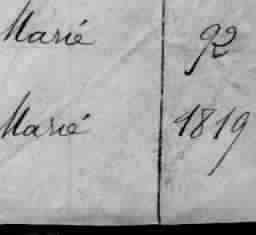 Marié 92
Marié 1819